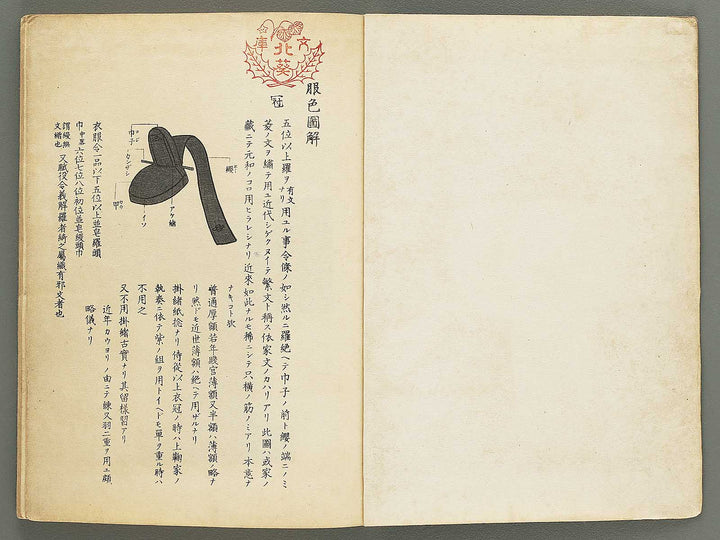 北葵
文庫
服色圖解
冠
五位以上羅ヲ有文ナリ用ユル事令條ノ如シ然ルニ羅絶ヘテ巾子ノ前ト纓ノ端ニノミ
菱ノ文ヲ繍テ用ユ近代シゲクヌイテ繁文ト稱ス依家文ノカハリアリ此圖ハ或家ノ
藏ニテ元和ノコロ用ヒラレシナリ近來如此ナルモ稀ニシテ只横ノ筋ノミアリ本意ナ
ナキコト歟
普通厚額若年殿官薄額又半額ハ薄額ノ略ナ
リ然ドモ近世薄額ハ絶ヘテ用ザルナリ
掛緒紙捻ナリ侍從以上衣冠ノ時ハ上鞠家ノ
執奏ニ依テ紫ノ組ヲ用トイヘドモ單ヲ重ル時ハ
不用之
又不用掛緒古實ナリ其留樣習アリ
近年カウヨリノ由ニテ練又羽二重ヲ用ユ頗
略儀ナリ
纓
巾子
カンザシ
アゲ緒
イソ
甲
衣服令一品以下五位以上並皂羅頭
巾中畧六位七位八位初位並皂縵頭巾
謂縵無文繒也又賦役令義解羅者綺之屬織有邪文者也